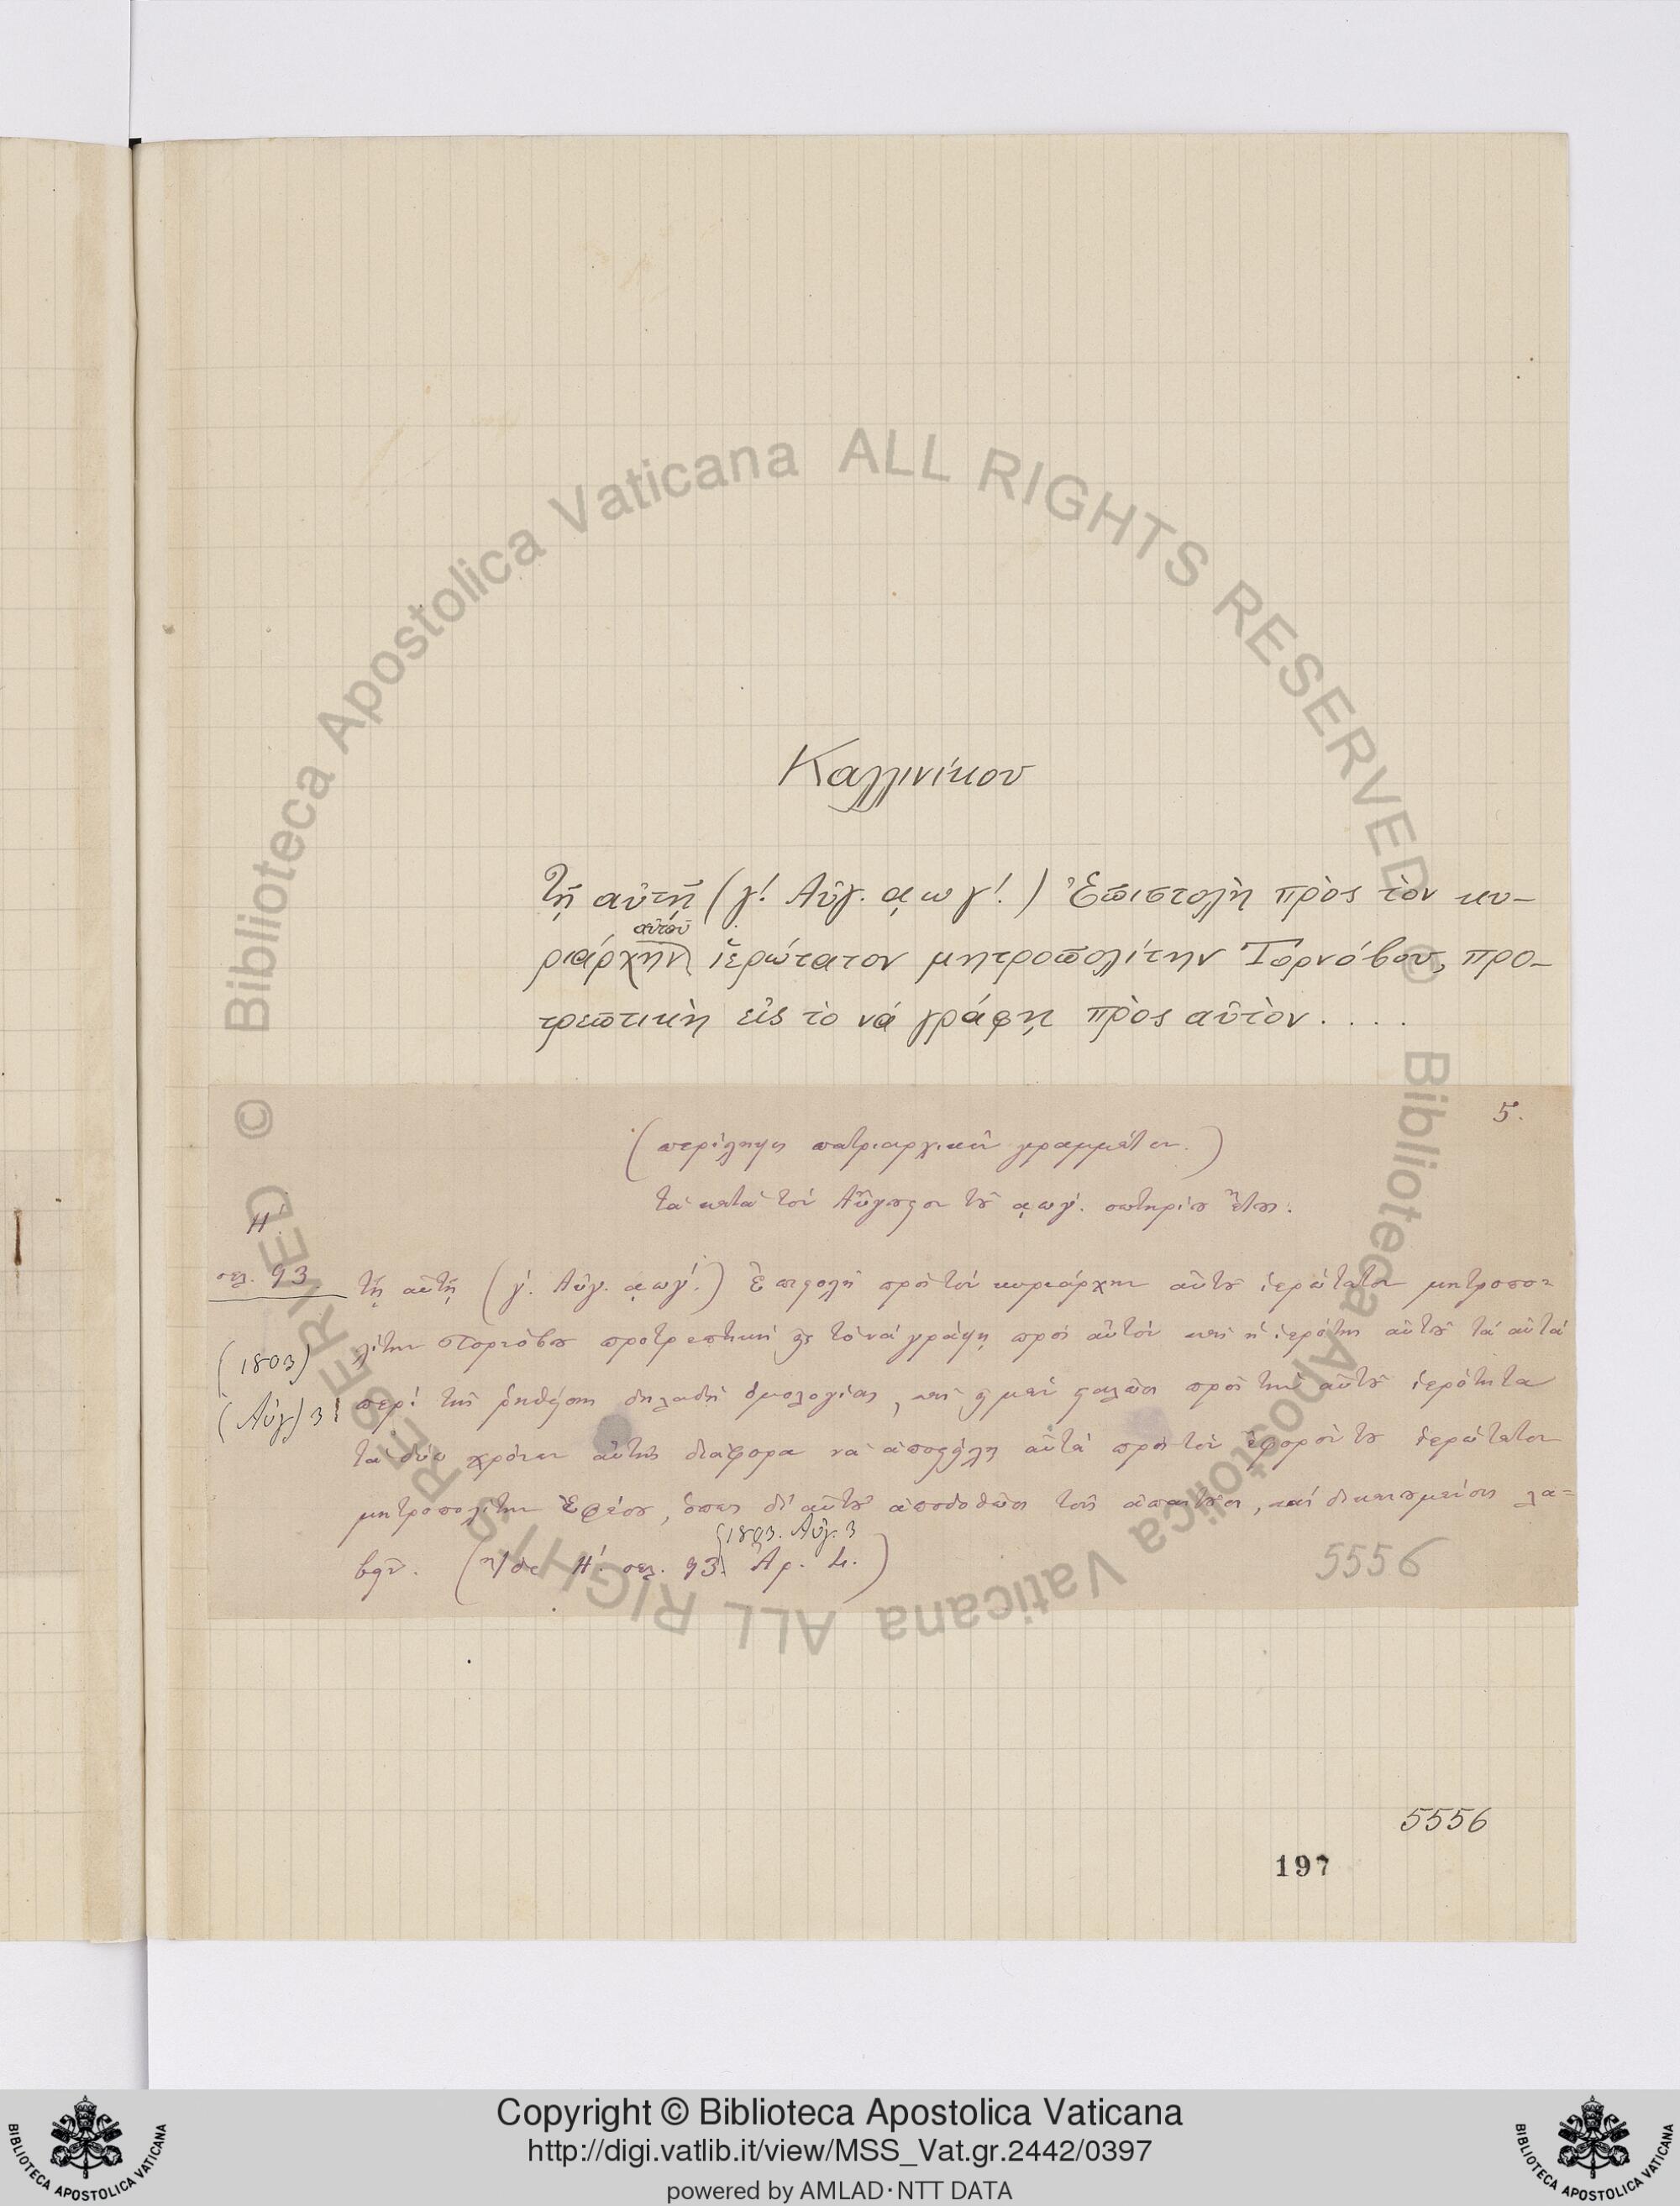 Καλλινίκου
Τῇ αὐτῇ (γ! Αὐγ. αωγ!) Ἐπιστολὴ πρὸς τὸν κυ-
αὐτοῦ
ριάρχην ἱερώτατον μητροπολίτην Τορνόβου, προ-
τρεπτικὴ εἰς τὸ νά γράφῃ πρὸς αὐτὸν....
5.
(περίληψις πατριαρχικῶν γραμμάτων.)
τὰ κατὰ τὸν Αὔγουστον τοῦ αωγ΄. σωτηρίου ἔτους:
Η΄.
σελ. 93
τῇ αὐτῇ (γ΄. Αὐγ. αωγ΄.) Ἐπιστολὴ πρὸς τὸν κυριάρχην αὐτοῦ ἱερώτατον μητροπο=
(1803)
λίτην Τορνόβου προτρεπτικὴ εἰς τὸ νὰ γράφῃ πρὸς αὐτὸν καὶ ἡ ἱερότης αὐτοῦ τὰ αὐτὰ
(Αὐγ) 3!
περὶ τῆς ῥηθείσης δηλαδὴ ὁμολογίας, καὶ
πρὸς τὴν αὐτοῦ ἱερότητα
τὰ δύο χρόνων αὐτῆς διάφορα νὰ ἀποστείλῃ αὐτὰ πρὸς τὸν ἔφορόν του ἱερώτατον
μητροπολίτην Ἐφέσου, ὅπως δι' αὐτοῦ ἀποδοθῶσι τοῖς ἀπαιτοῦσι, καὶ
λα=
1803. Αὐγ. 3
βεῖν. (Κῶδ. Η΄. σελ. 93. Αρ.
5556
5556
197
Copyright © Biblioteca Apostolica Vaticana
http://digi.vatlib.it/view/MSS_Vat.gr.2442/0397
powered by AMLAD·NTT DATA
BIBLIOTECA APOSTOLICA VATICANA
BIBLIOTECA APOSTOLICA VATICANA
© Biblioteca Apostolica Vaticana ALL RIGHTS RESERVED
© Biblioteca Apostolica Vaticana ALL RIGHTS RESERVED